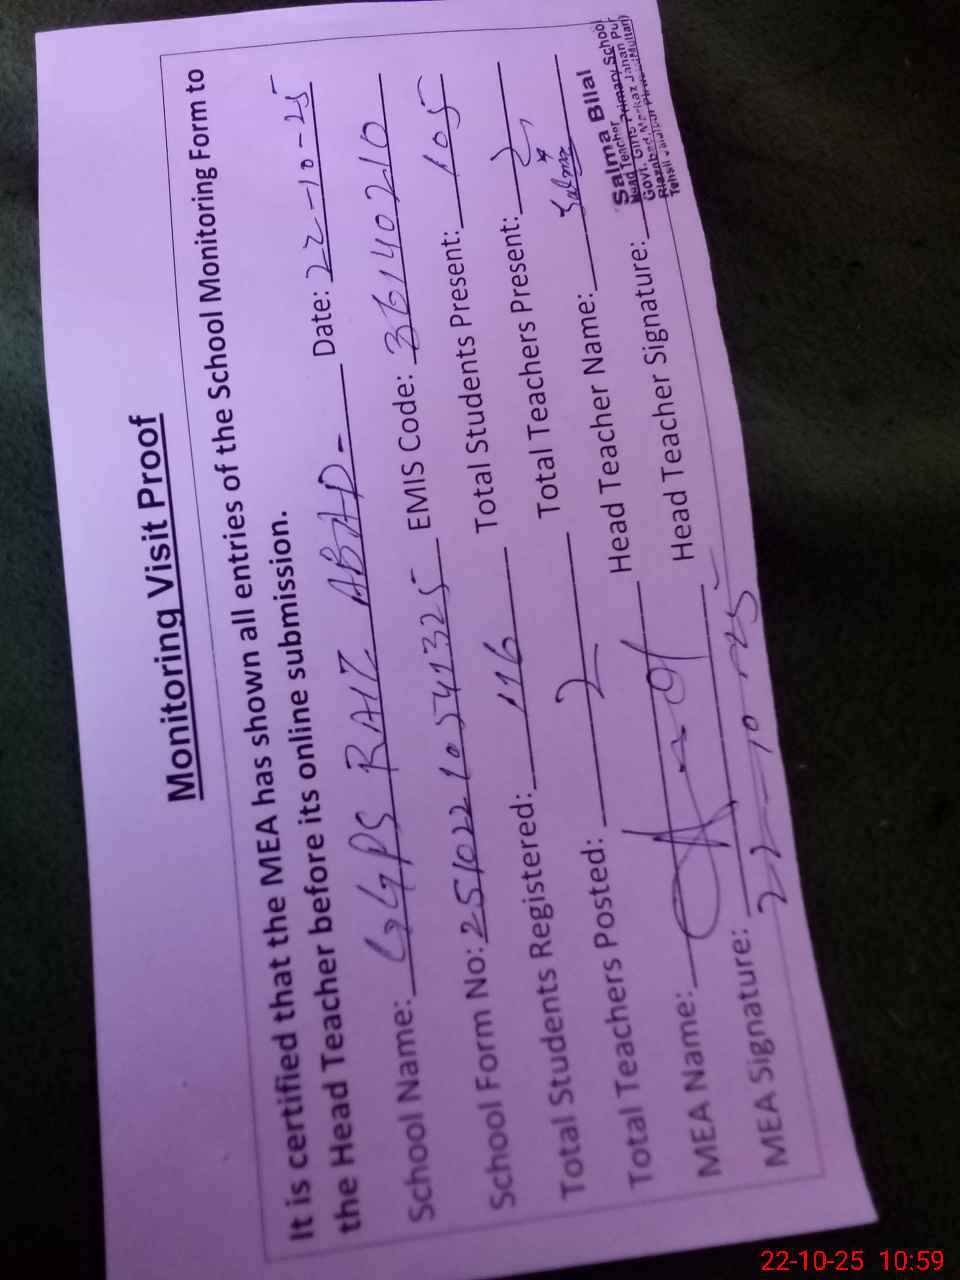 Monitoring Visit Proof
It is certified that the MEA has shown all entries of the School Monitoring Form to
the Head Teacher before its online submission.
School Name: GGPS RAIZ ABAD- Date: 22-10-25
School Form No: 25102210541325 EMIS Code: 36140210
Total Students Registered: 116 Total Students Present: 105
Total Teachers Posted: 2 Total Teachers Present: 2
MEA Name: Head Teacher Name: Salma
MEA Signature: Head Teacher Signature:
22-10-25
Salma Bilal
Head Teacher
Govt. Girls Primary School
Markaz Jahan Pur
22-10-25 10:59